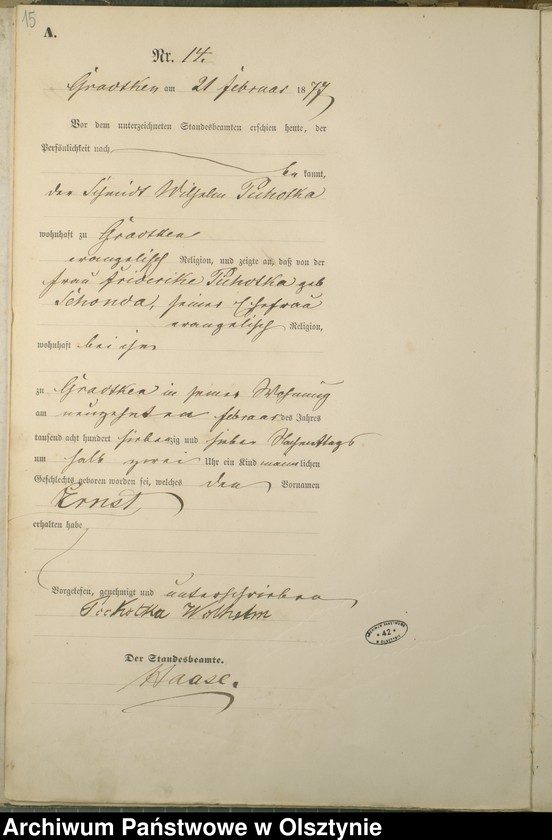 15
A.
Nr. 14.
Gradtken am 21 Februar 1877
Vor dem unterzeichneten Standesbeamten erschien heute, der
Persönlichkeit nach
be kannt,
der Schmidt Wilhelm
wohnhaft zu Gradtken
evangelisch Religion, und zeigte an, daß von der
Frau Friederike geb
Schonda, seiner Ehefrau
evangelisch Religion,
wohnhaft bei ihm
zu Gradtken in seiner Wohnung
am neunzehnten Februar des Jahres
tausend acht hundert siebenzig und sieben Nachmittags
um halb zwei Uhr ein Kind männlichen
Geschlechts geboren worden sei, welches den Vornamen
Ernst
erhalten habe
Vorgelesen, genehmigt und unterschrieben
Der Standesbeamte.
Haase.
ARCHIWUM PAŃSTWOWE
* 42 *
W OLSZTYNIE
Archiwum Państwowe w Olsztynie